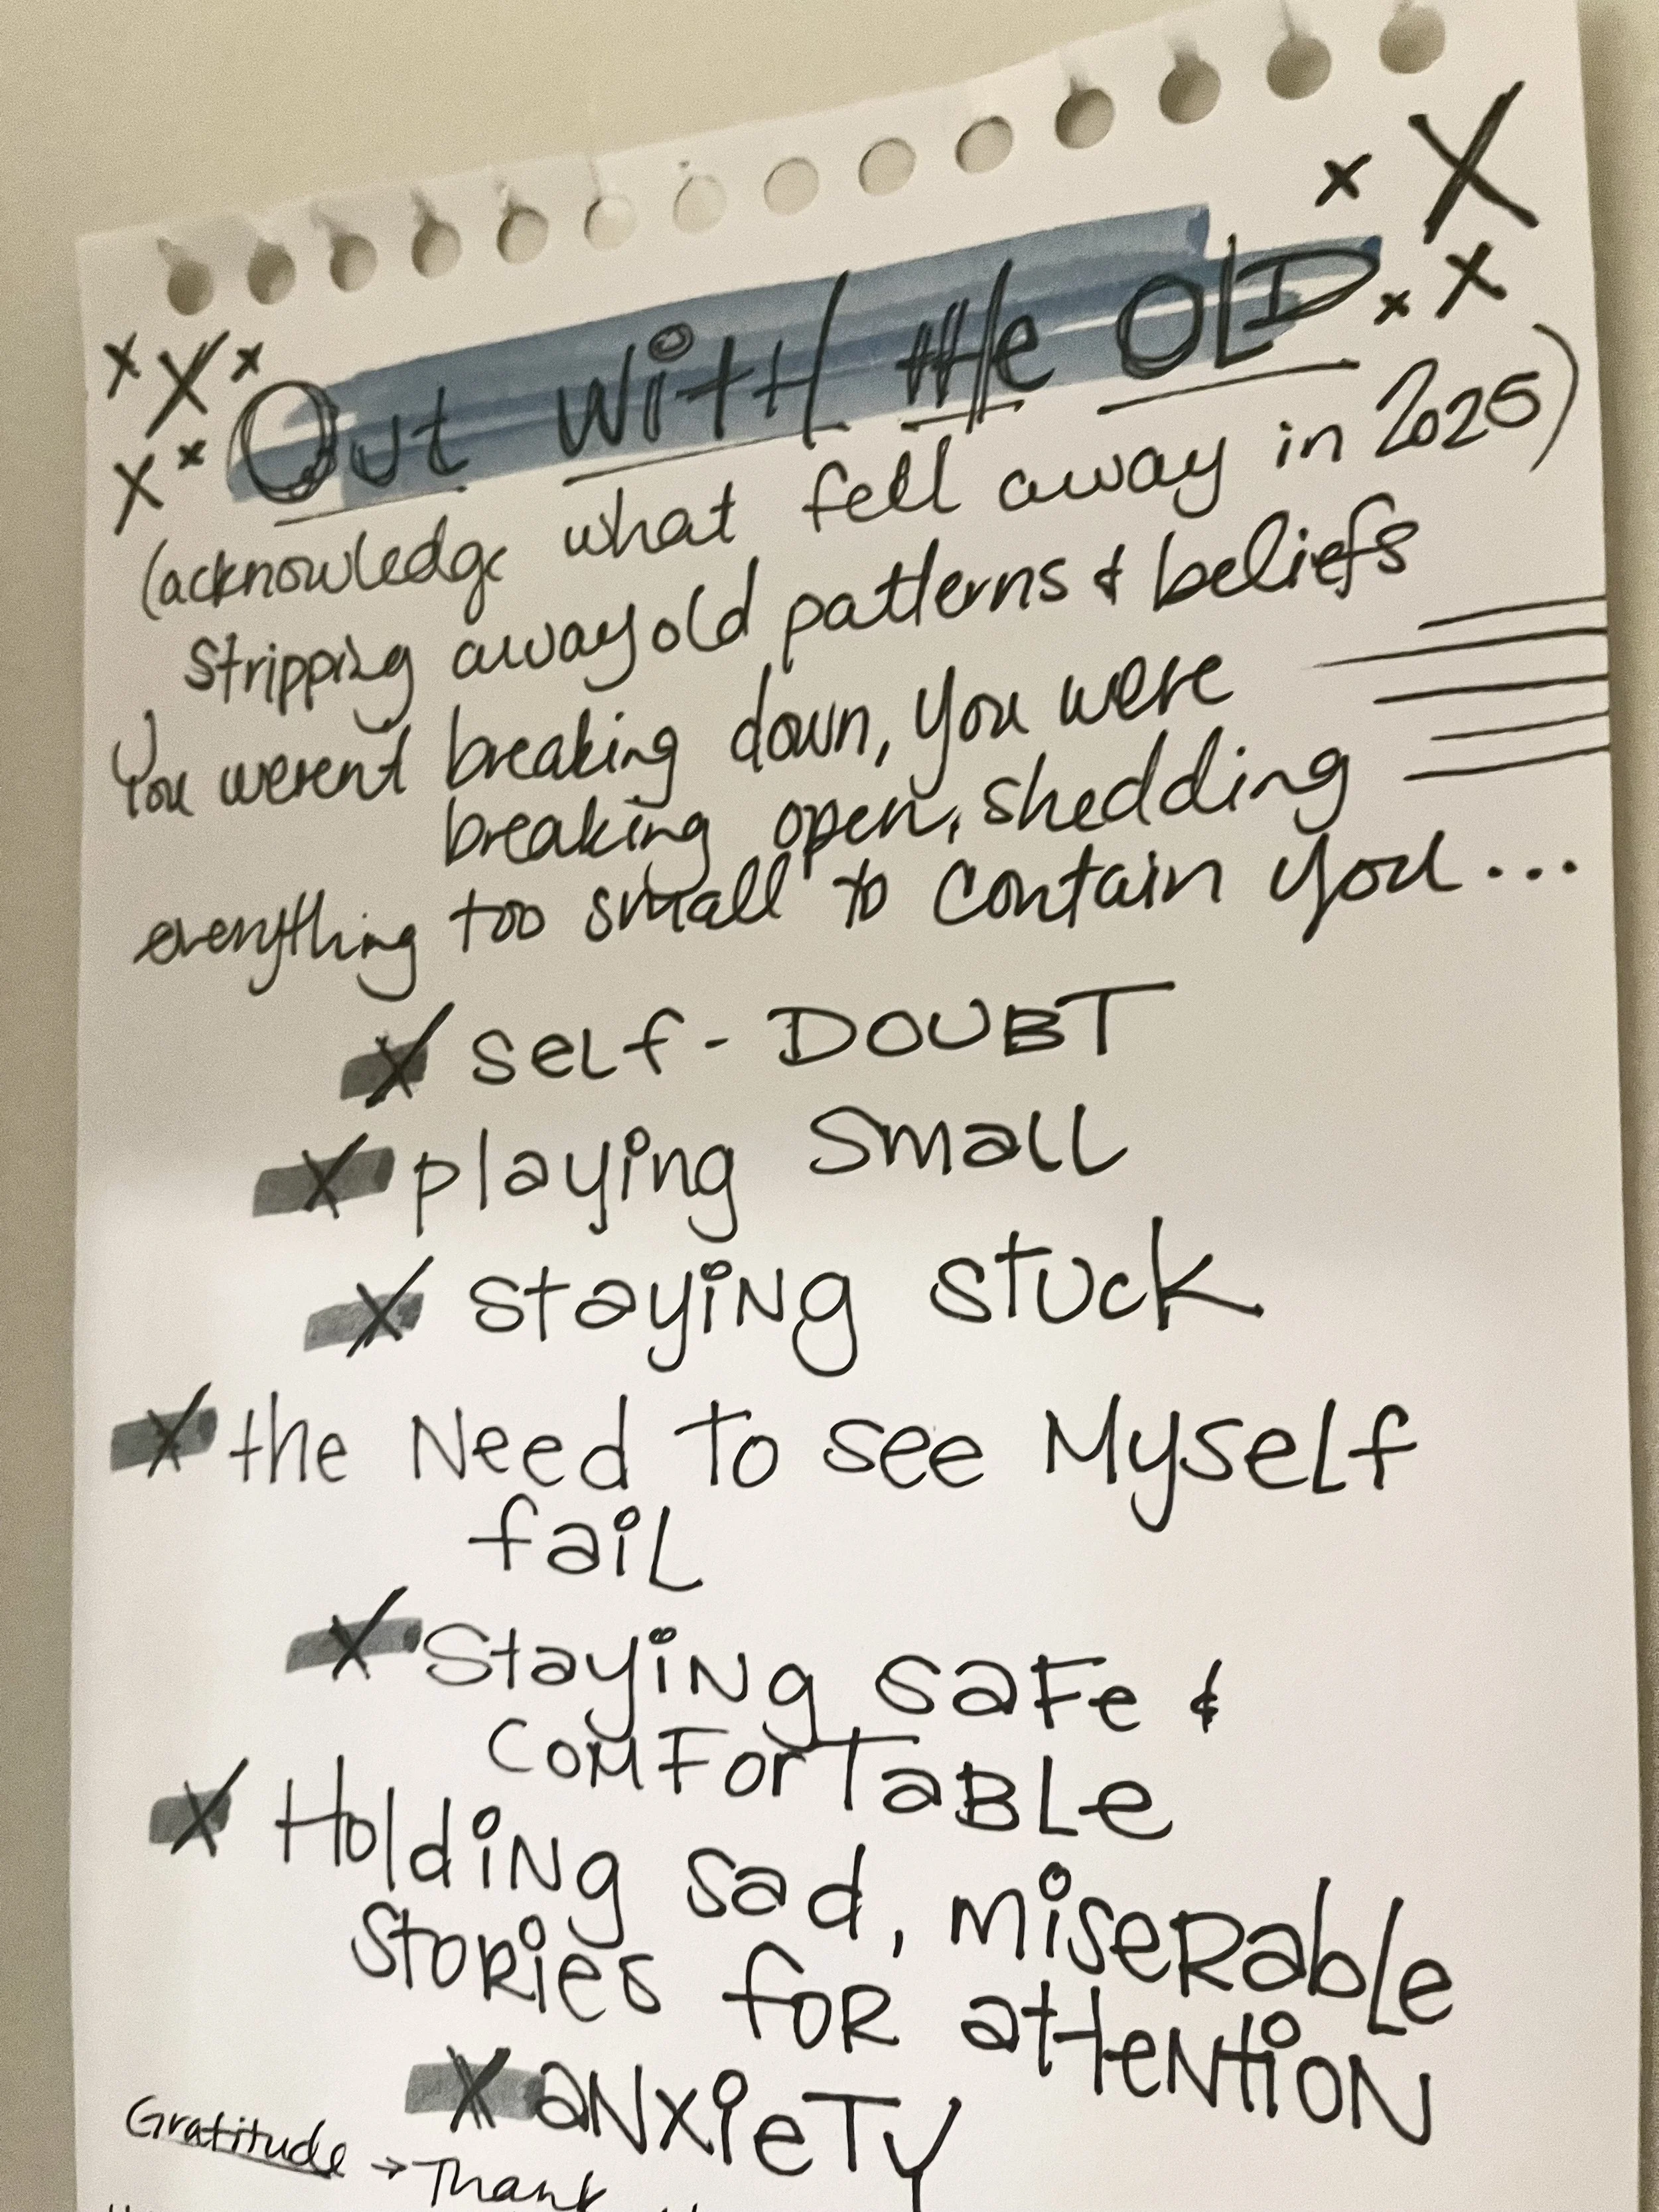 Out with the OLD
(acknowledge what fell away in 2025)
Stripping away old patterns & beliefs
You werent breaking down, you were
breaking open, shedding
everything too small to contain you...
x self-DOUBT
x playing small
x staying stuck
x the Need to see Myself
fail
x Staying safe &
comfortable
x Holding sad, miserable
stories for attention
x anxiety
Gratitude → Thank